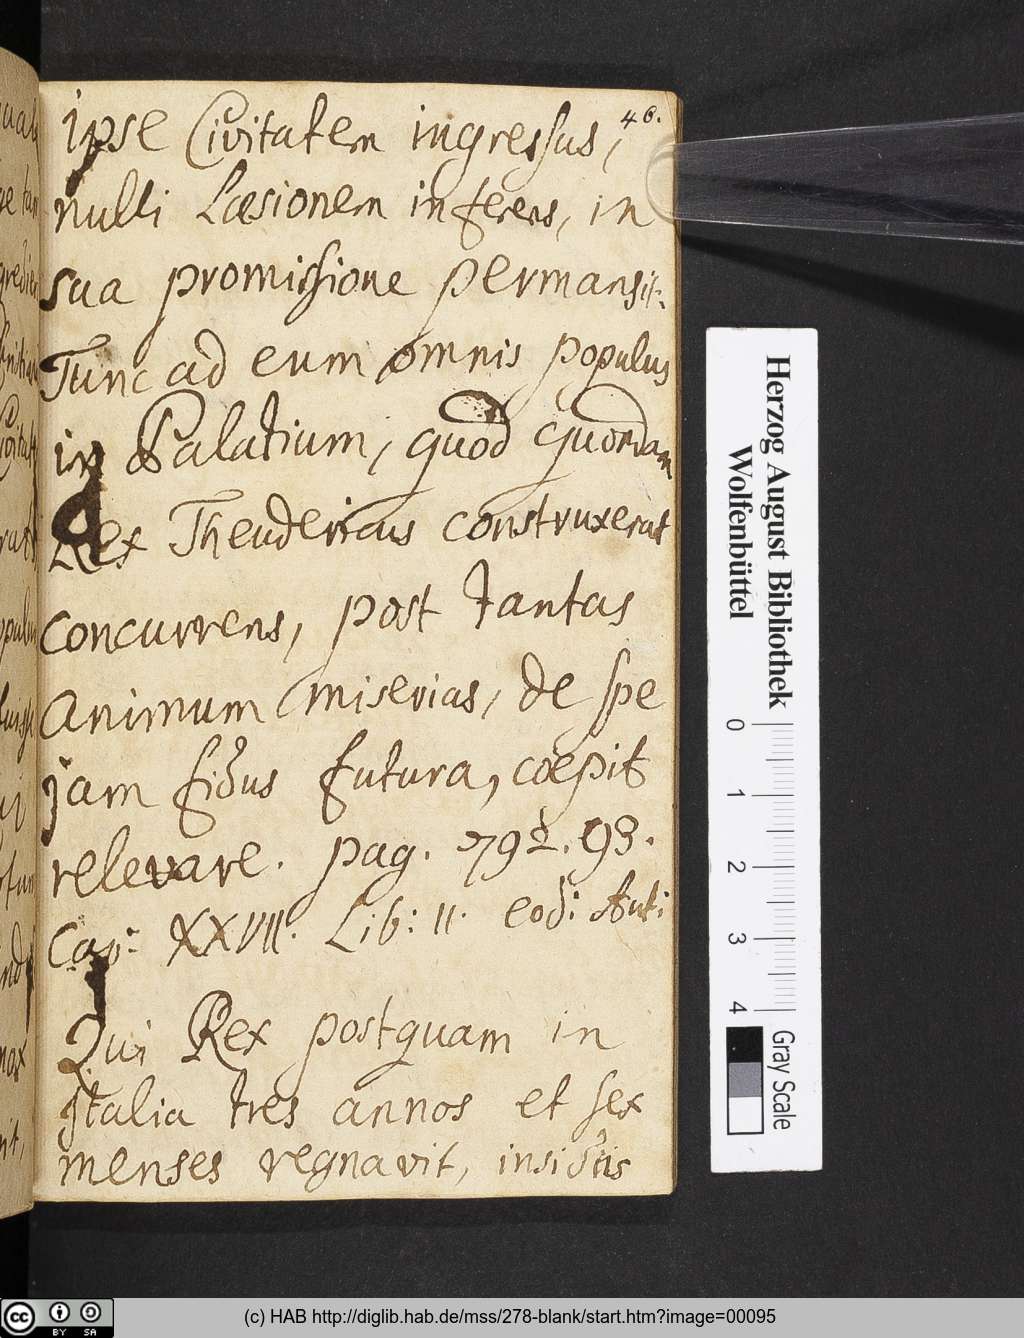 46.
ipse Civitatem ingressus,
nulli Læsionem inferens, in
sua promissione permansit.
Tunc ad eum omnis populus
in Palatium, quod quondam
Rex Theudericus construxerat
concurrens, post tantas
animum miserias, de spe
jam fidus futura, cœpit
relevare. pag. 792. 93.
Cap: XXVII. Lib: II. eod: Auti
Qui Rex postquam in
Italia tres annos et sex
menses regnavit, insidiis
Herzog August Bibliothek
Wolfenbüttel
0 1 2 3 4
Gray Scale
cc BY SA
(c) HAB http://diglib.hab.de/mss/278-blank/start.htm?image=00095